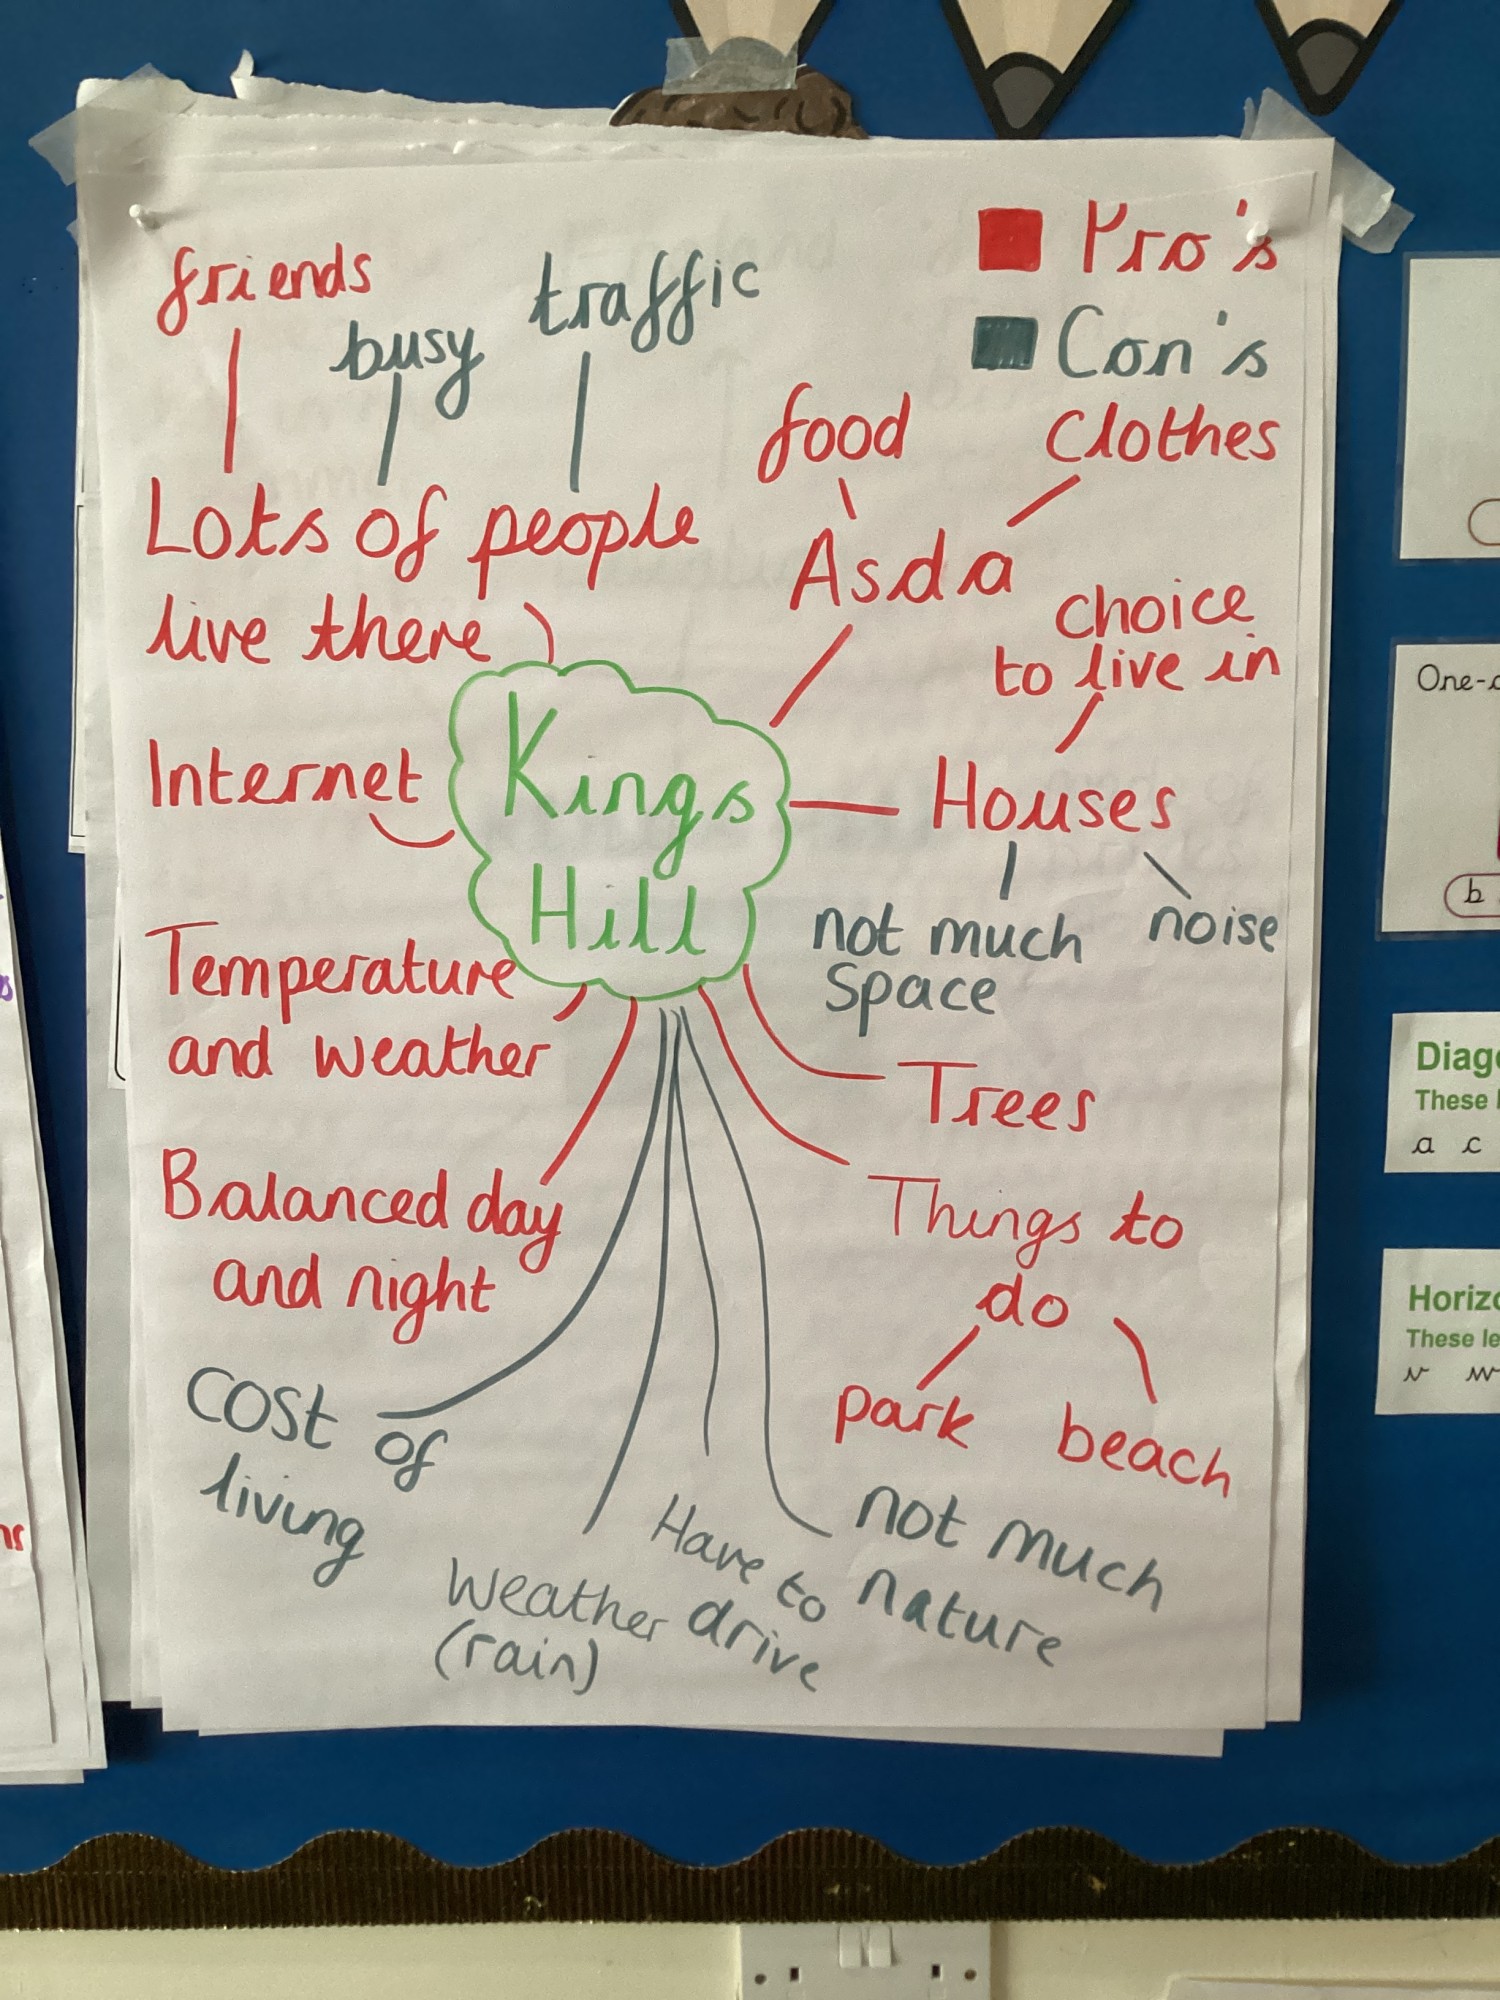 Pro's
Con's
friends
busy
traffic
Lots of people
live there
food
Clothes
Asda
choice
to live in
Kings
Hill
Internet
Houses
not much
Space
noise
Temperature
and weather
Trees
Balanced day
and night
Things to
do
park
beach
Cost of
living
Weather
(rain)
Have to
drive
not much
nature
One-
b
Diag
These l
a c
Horizo
These le
v w